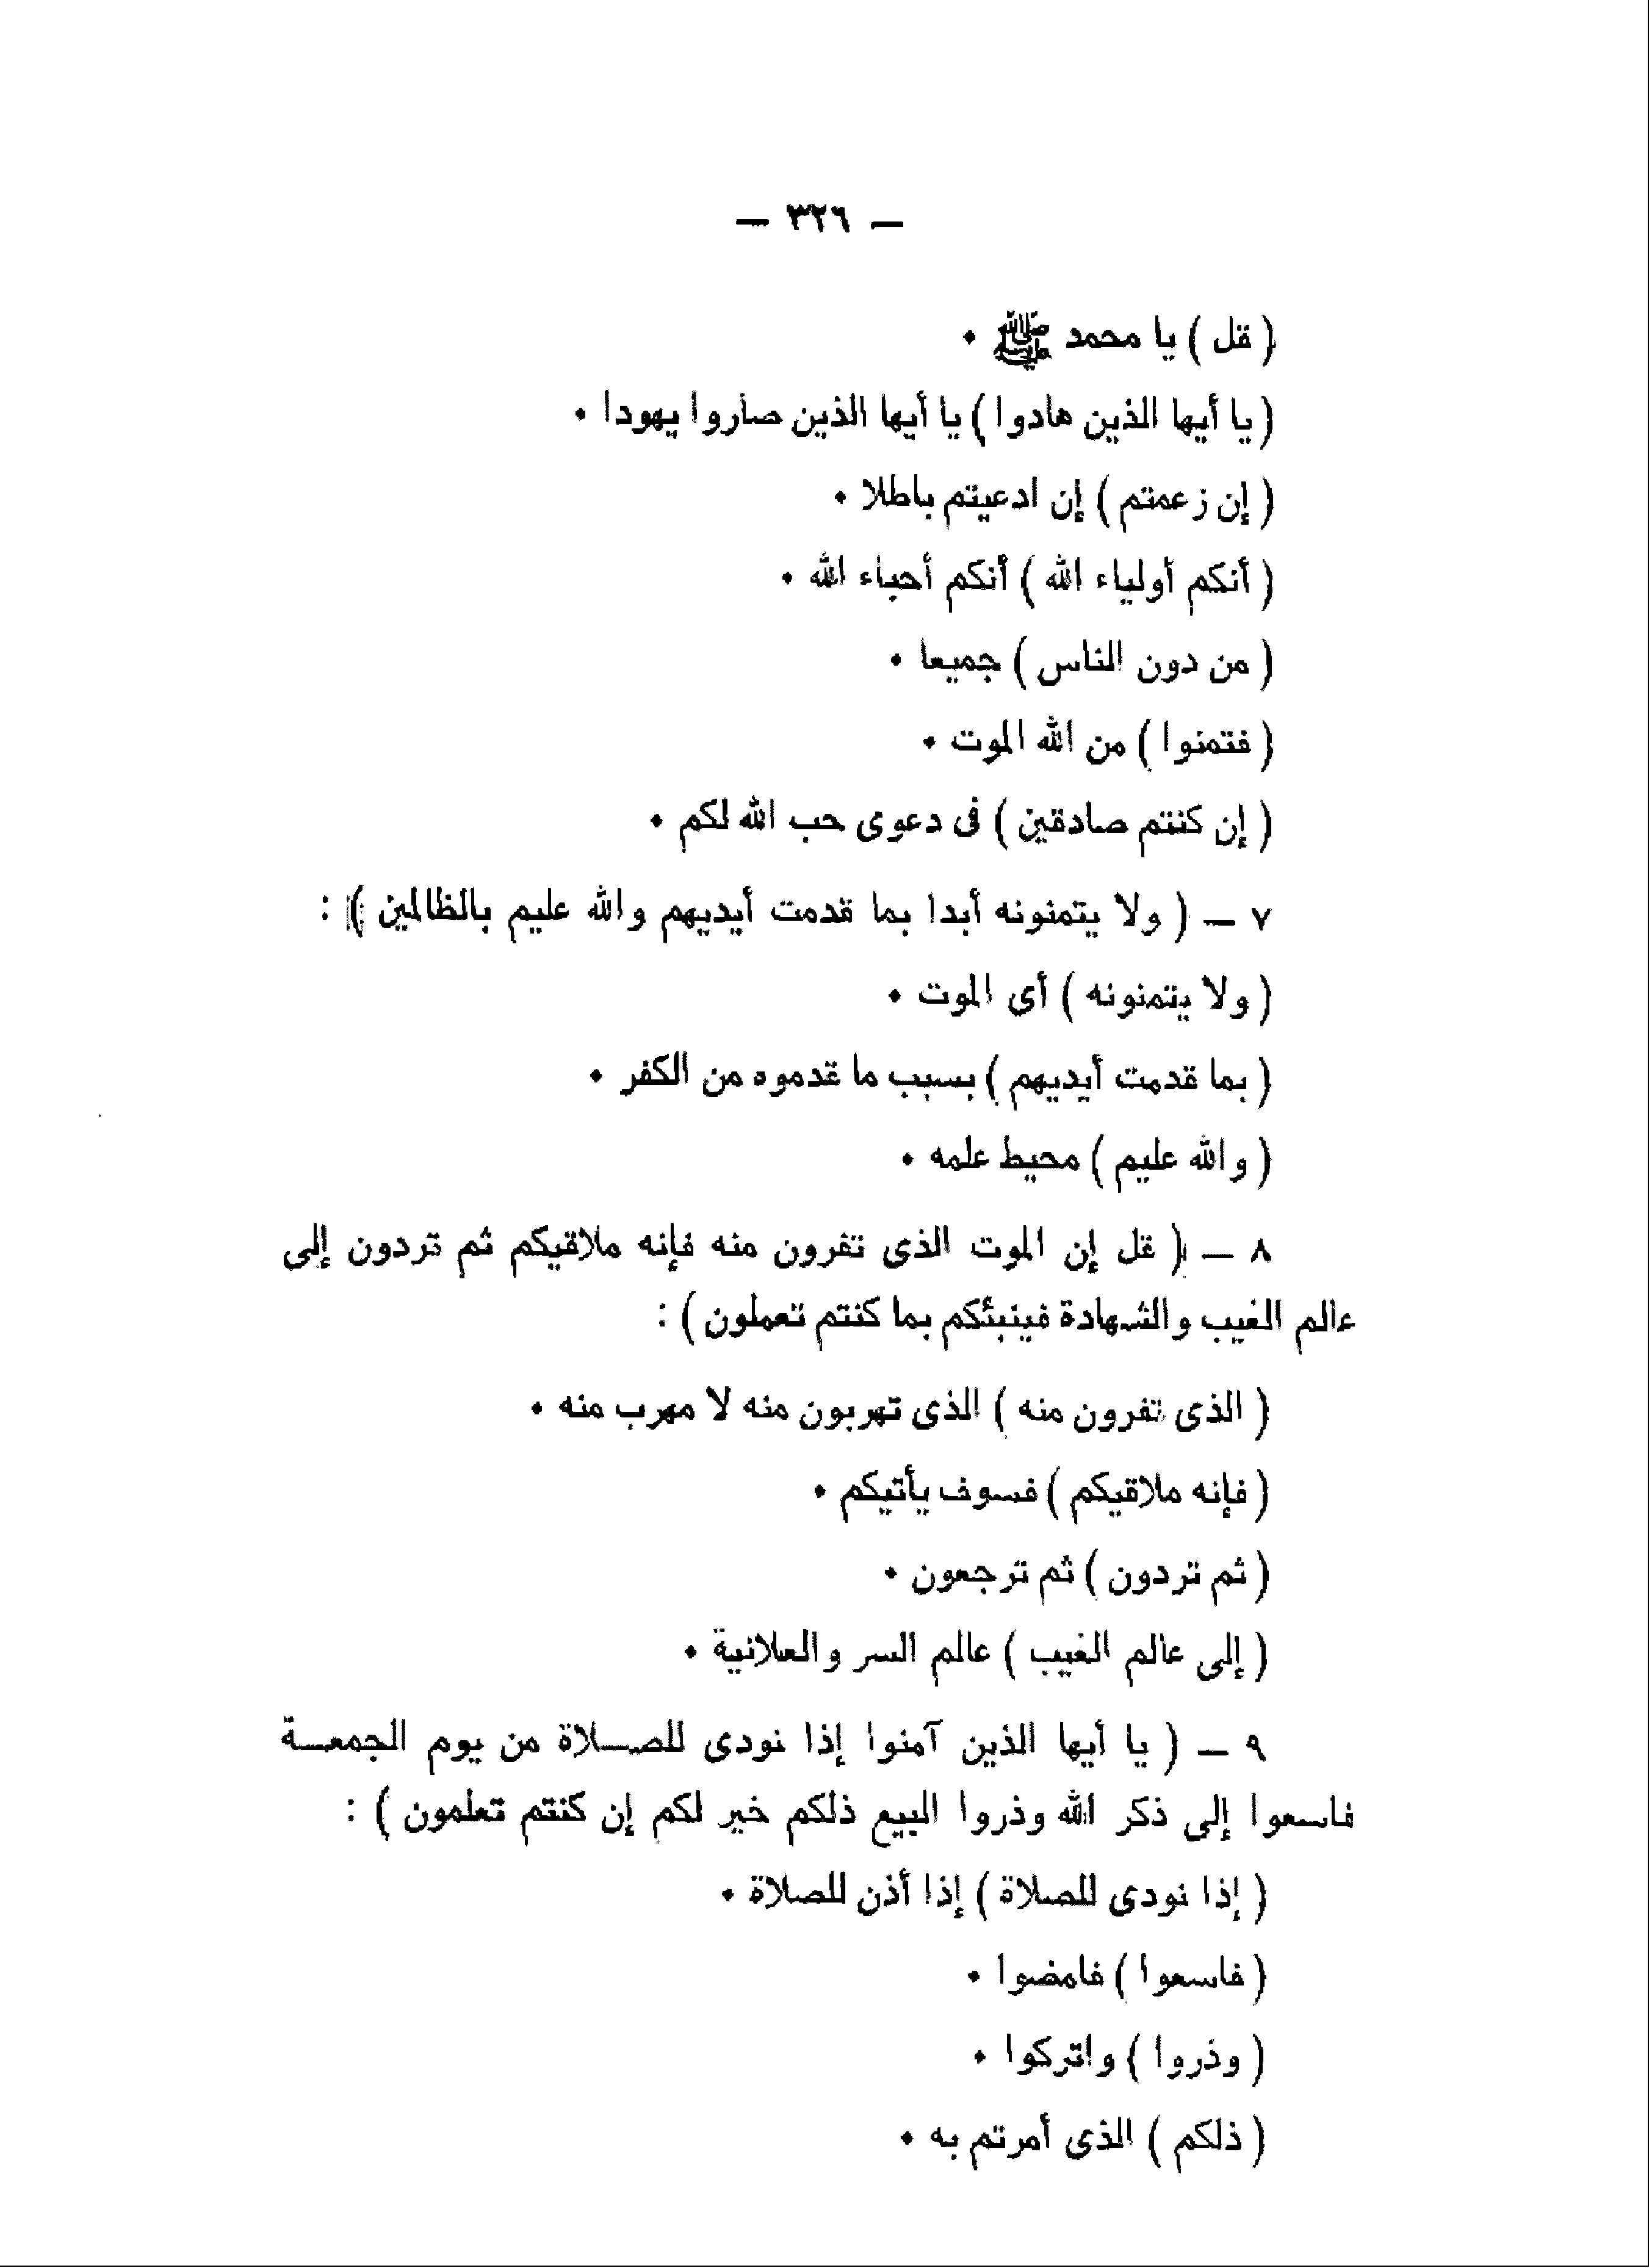 — ٣٢٦ —
( قل ) يا محمد ﷺ ٠
( يا أيها الذين هادوا ) يا أيها الذين صاروا يهودا ٠
( إن زعمتم ) إن ادعيتم باطلا ٠
( أنكم أولياء الله ) أنكم أحباء الله ٠
( من دون الناس ) جميعا ٠
( فتمنوا ) من الله الموت ٠
( إن كنتم صادقين ) فى دعوى حب الله لكم ٠
٧ — ( ولا يتمنونه أبدا بما قدمت أيديهم والله عليم بالظالمين ) :
( ولا يتمنونه ) أى الموت ٠
( بما قدمت أيديهم ) بسبب ما قدموه من الكفر ٠
( والله عليم ) محيط علمه ٠
٨ — ( قل إن الموت الذى تفرون منه فإنه ملاقيكم ثم تردون إلى
عالم الغيب والشهادة فينبئكم بما كنتم تعملون ) :
( الذى تفرون منه ) الذى تهربون منه لا مهرب منه ٠
( فإنه ملاقيكم ) فسوف يأتيكم ٠
( ثم تردون ) ثم ترجعون ٠
( إلى عالم الغيب ) عالم السر والعلانية ٠
٩ — ( يا أيها الذين آمنوا إذا نودى للصـــلاة من يوم الجمعـــة
فاسعوا إلى ذكر الله وذروا البيع ذلكم خير لكم إن كنتم تعلمون ) :
( إذا نودى للصلاة ) إذا أذن للصلاة ٠
( فاسعوا ) فامضوا ٠
( وذروا ) واتركوا ٠
( ذلكم ) الذى أمرتم به ٠